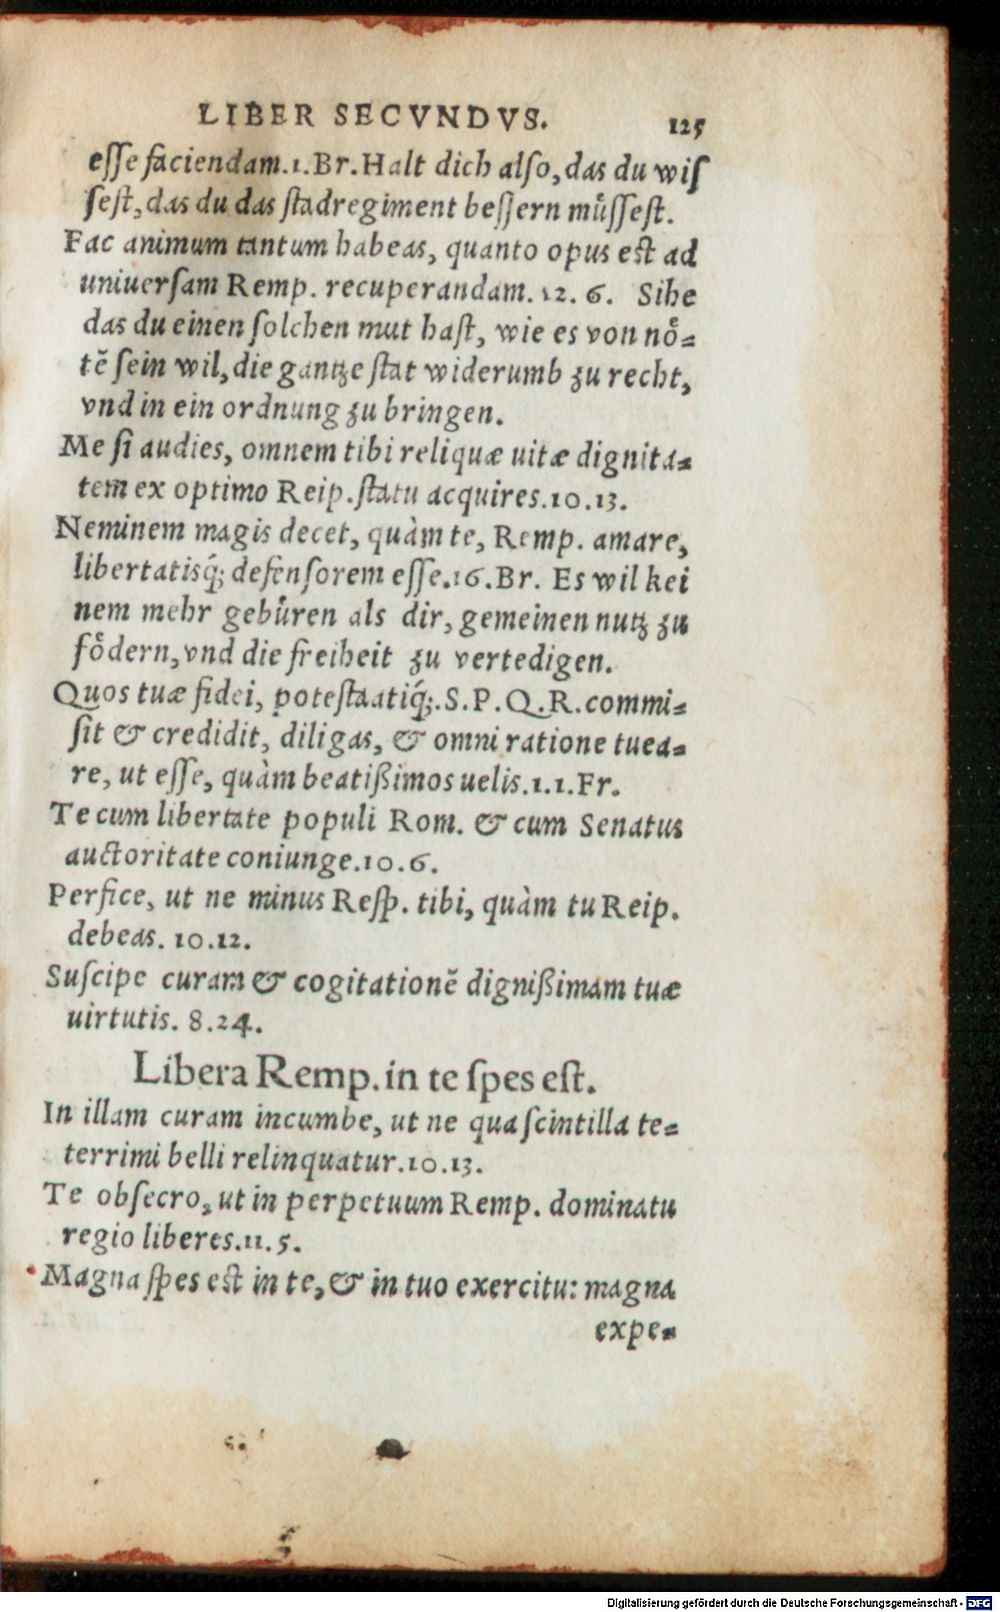 LIBER SECVNDVS. 125
eſſe faciendam.1.Br.Halt dich alſo,das du wiſ
ſeſt,das du das ſtadregiment beſſern muͤſſeſt.
Fac animum tantum habeas, quanto opus eſt ad
uniuerſam Remp. recuperandam. 12. 6. Sihe
das du einen ſolchen mut haſt, wie es von noͤ=
tē ſein wil,die gantze ſtat widerumb zu recht,
vnd in ein ordnung zu bringen.
Me ſi audies, omnem tibi reliquæ uitæ dignita=
tem ex optimo Reip.ſtatu acquires.10.13.
Neminem magis decet, quàm te, Remp. amare,
libertatisq́; defenſorem eſſe.16.Br. Es wil kei
nem mehr gebuͤren als dir, gemeinen nutz zu
foͤdern,vnd die freiheit zu vertedigen.
Quos tuæ fidei, poteſtaatiq́;.S.P.Q.R.commi=
ſit & credidit, diligas, & omni ratione tuea=
re, ut eſſe, quàm beatißimos uelis.1.1.Fr.
Te cum libertate populi Rom. & cum Senatus
auctoritate coniunge.10.6.
Perfice, ut ne minus Reſp. tibi, quàm tu Reip.
debeas. 10.12.
Suſcipe curam & cogitationē dignißimam tuæ
uirtutis. 8.24.
Libera Remp. in te ſpes eſt.
In illam curam incumbe, ut ne qua ſcintilla te=
terrimi belli relinquatur.10.13.
Te obſecro, ut in perpetuum Remp. dominatu
regio liberes.11.5.
Magna ſpes eſt in te, & in tuo exercitu: magna
expe=
Digitalisierung gefördert durch die Deutsche Forschungsgemeinschaft - DFG